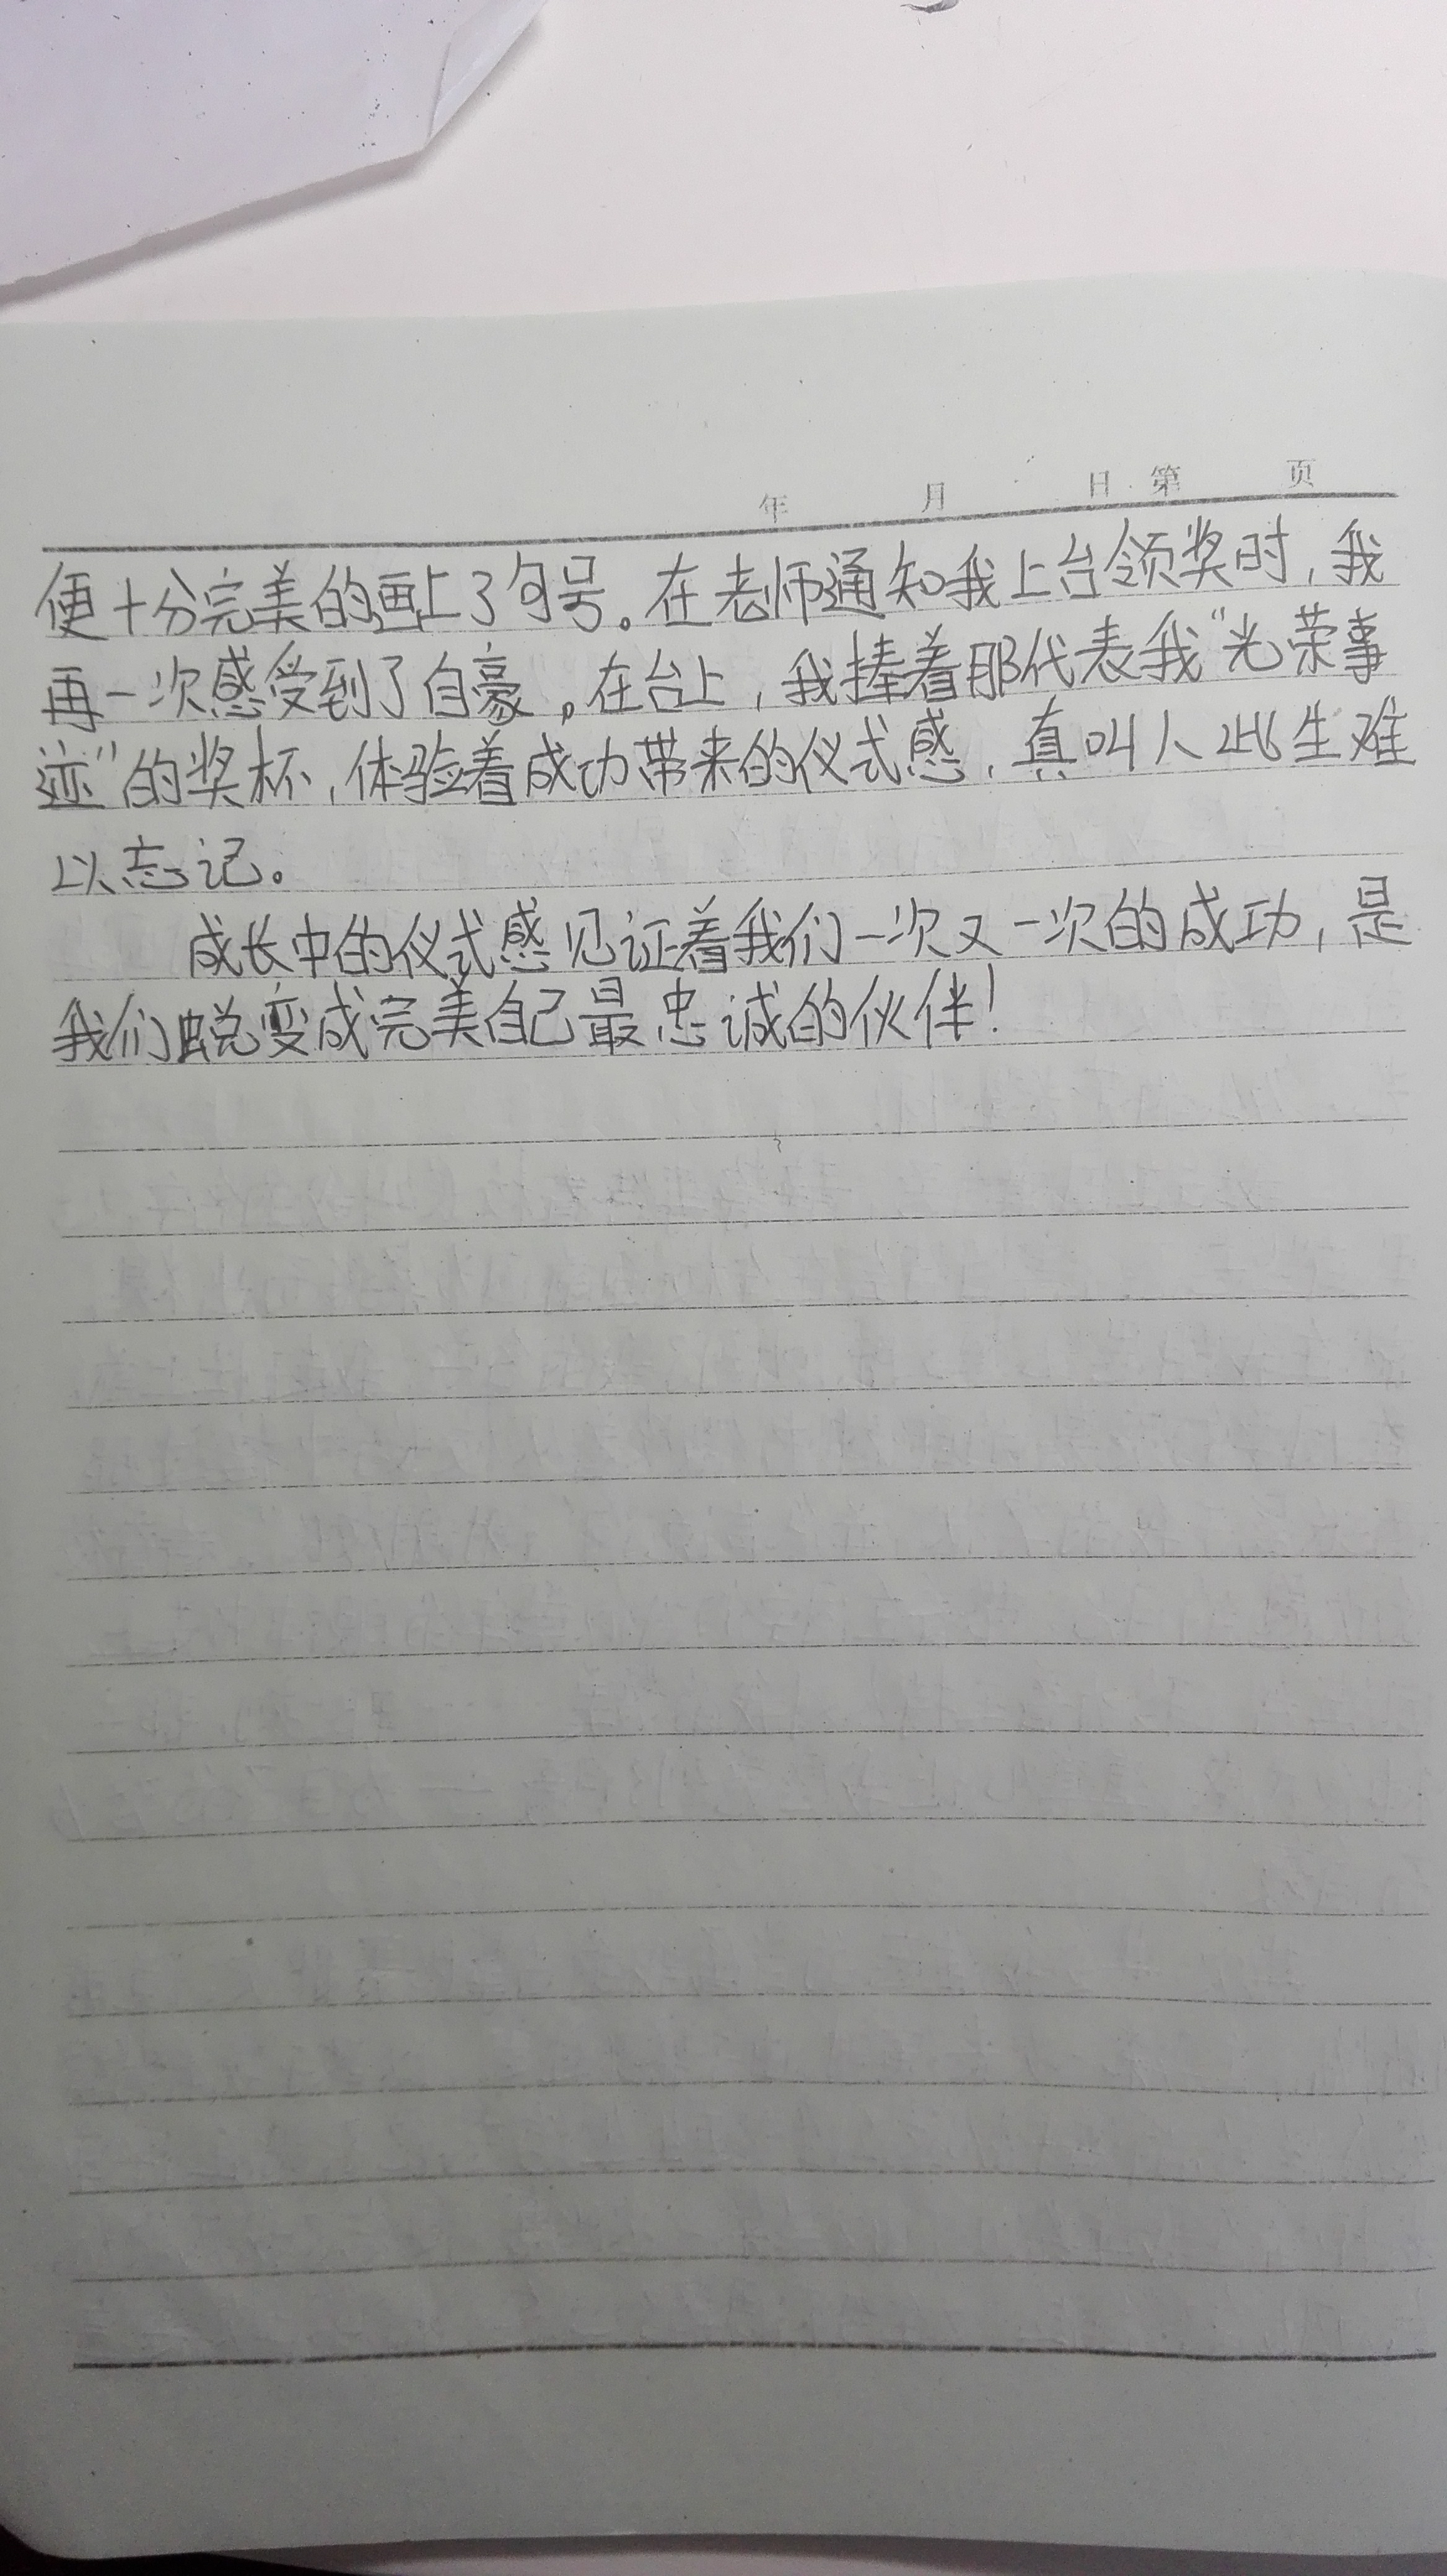 年 月 日 第 页
便十分完美的画上了句号。在老师通知我上台领奖时，我
再一次感受到了自豪。在台上，我捧着那代表我“光荣事
迹”的奖杯，体验着成功带来的仪式感，真叫人此生难
以忘记。
成长中的仪式感见证着我们一次又一次的成功，是
我们蜕变成完美自己最忠诚的伙伴！